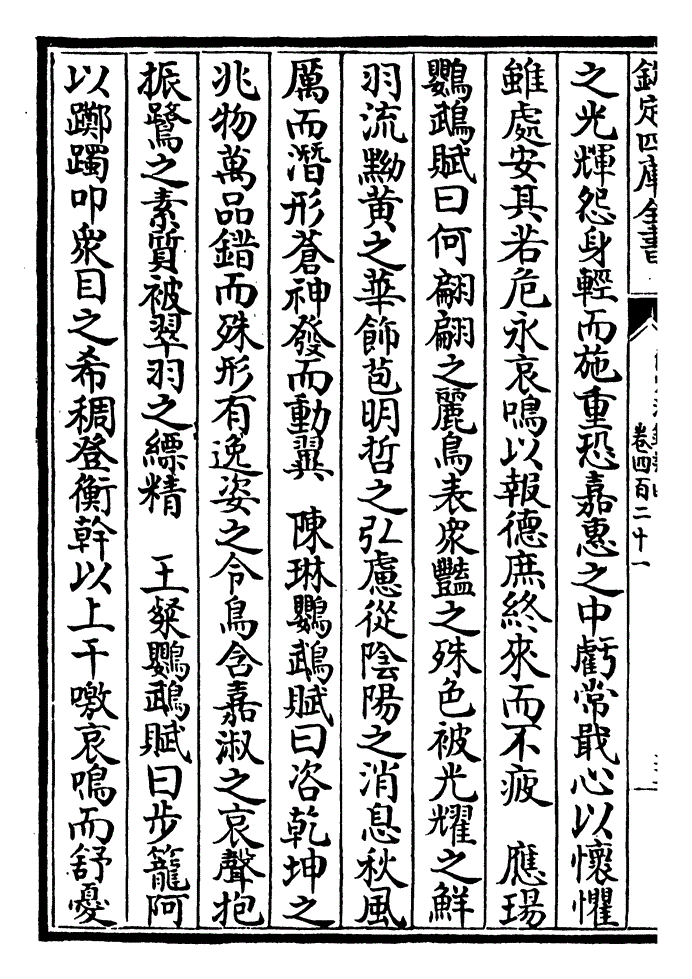 欽定四庫全書
卷四百二十一
之光輝怨身輕而施重恐嘉惠之中虧常戢心以懷懼
雖處安其若危永哀鳴以報德庶終來而不疲　應瑒
鸚鵡賦曰何翩翩之麗鳥表衆豔之殊色被光耀之鮮
羽流黝黄之華飾苞明哲之弘慮從陰陽之消息秋風
厲而潛形蒼神發而動翼　陳琳鸚鵡賦曰咨乾坤之
兆物萬品錯而殊形有逸姿之令鳥含嘉淑之哀聲抱
振鷺之素質被翠羽之縹精　王粲鸚鵡賦曰步籠阿
以躑躅叩衆目之希稠登衡幹以上干噭哀鳴而舒憂